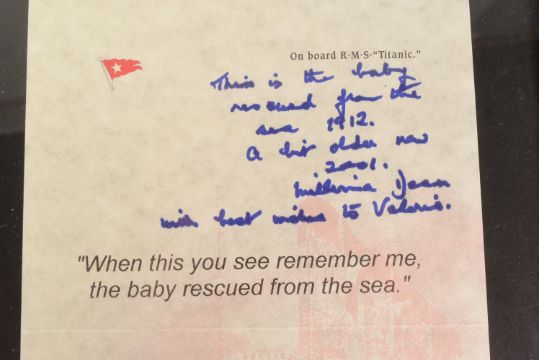 On board R·M·S·"Titanic."
This is the baby
rescued from the
sea 1912.
A bit older now
2001.
Millvina Dean
with best wishes to Valerie.
"When this you see remember me,
the baby rescued from the sea."